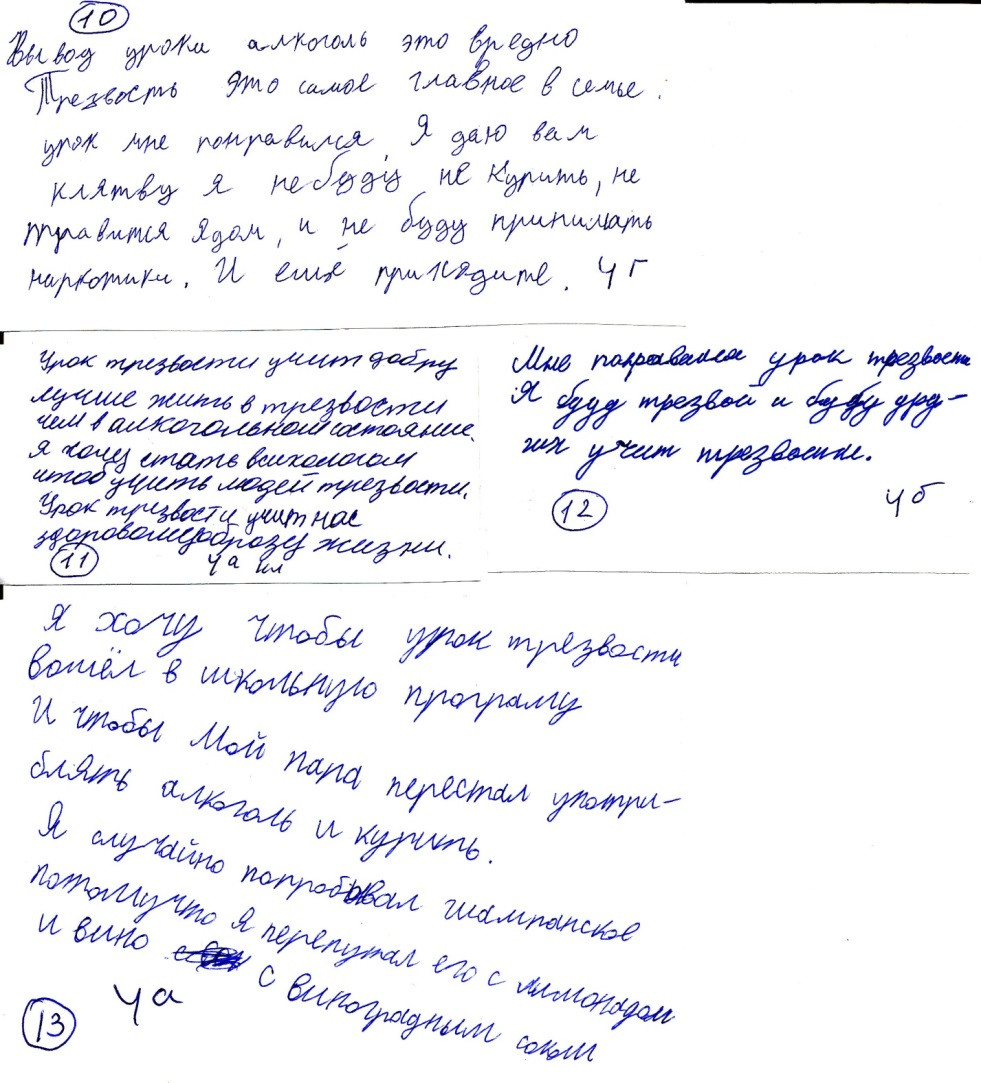 10
Вывод уроки алкоголь это вредно
Трезвость это самое главное в семье.
урок мне понравился. Я даю вам
клятву я небуду не курить, не
травится ядом, и не буду принимать
наркотики. И ещё приходите. 4 Г
Урок трезвости учит добру
лучше жить в трезвости
чем в алкогольном состояние.
Я хочу стать психологом
чтоб учить людей трезвости.
Урок трезвости учит нас
здоровому образу жизни.
11
4а кл
Мне понравился урок трезвости
Я буду трезвой и буду дру-
гих учит трезвости.
12
4б
Я хочу чтобы урок трезвости
вошёл в школьную програму
И чтобы Мой папа перестал употри-
блять алкоголь и курить.
Я случайно попробывал шампанское
потомучто я перепутал его с лимонадом
и вино с виноградным соком
13
4а